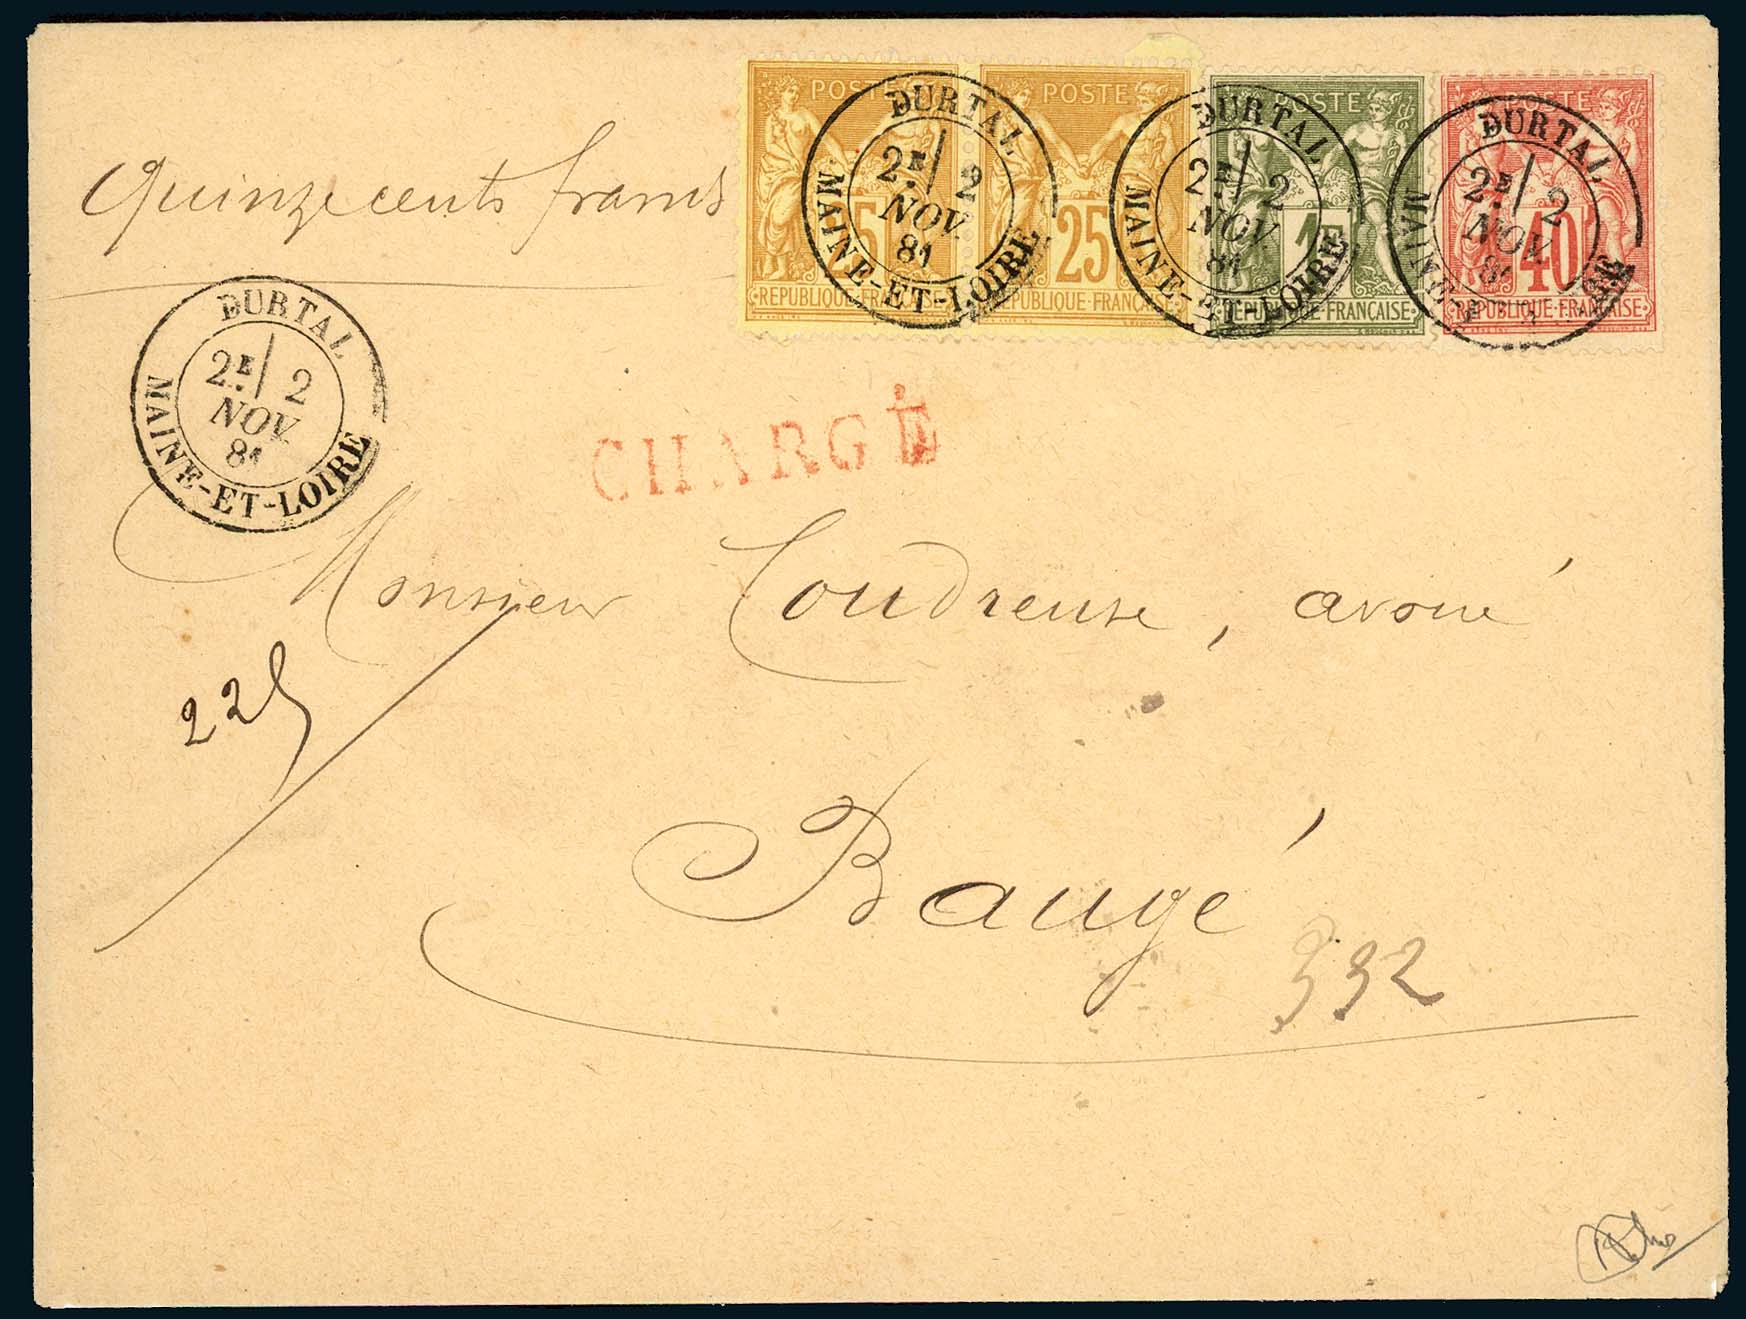 POSTE POSTE POSTE POSTE
25 25 1F 40
REPUBLIQUE FRANÇAISE REPUBLIQUE FRANÇAISE REPUBLIQUE FRANÇAISE REPUBLIQUE FRANÇAISE
DURTAL 2E 2 NOV. 81 MAINE-ET-LOIRE
DURTAL 2E 2 NOV. 81 MAINE-ET-LOIRE
DURTAL 2E 2 NOV. 81 MAINE-ET-LOIRE
Quinze cents francs
DURTAL 2E 2 NOV. 81 MAINE-ET-LOIRE
CHARGÉ
Monsieur Coudreuse, avoué
225
Baugé
332